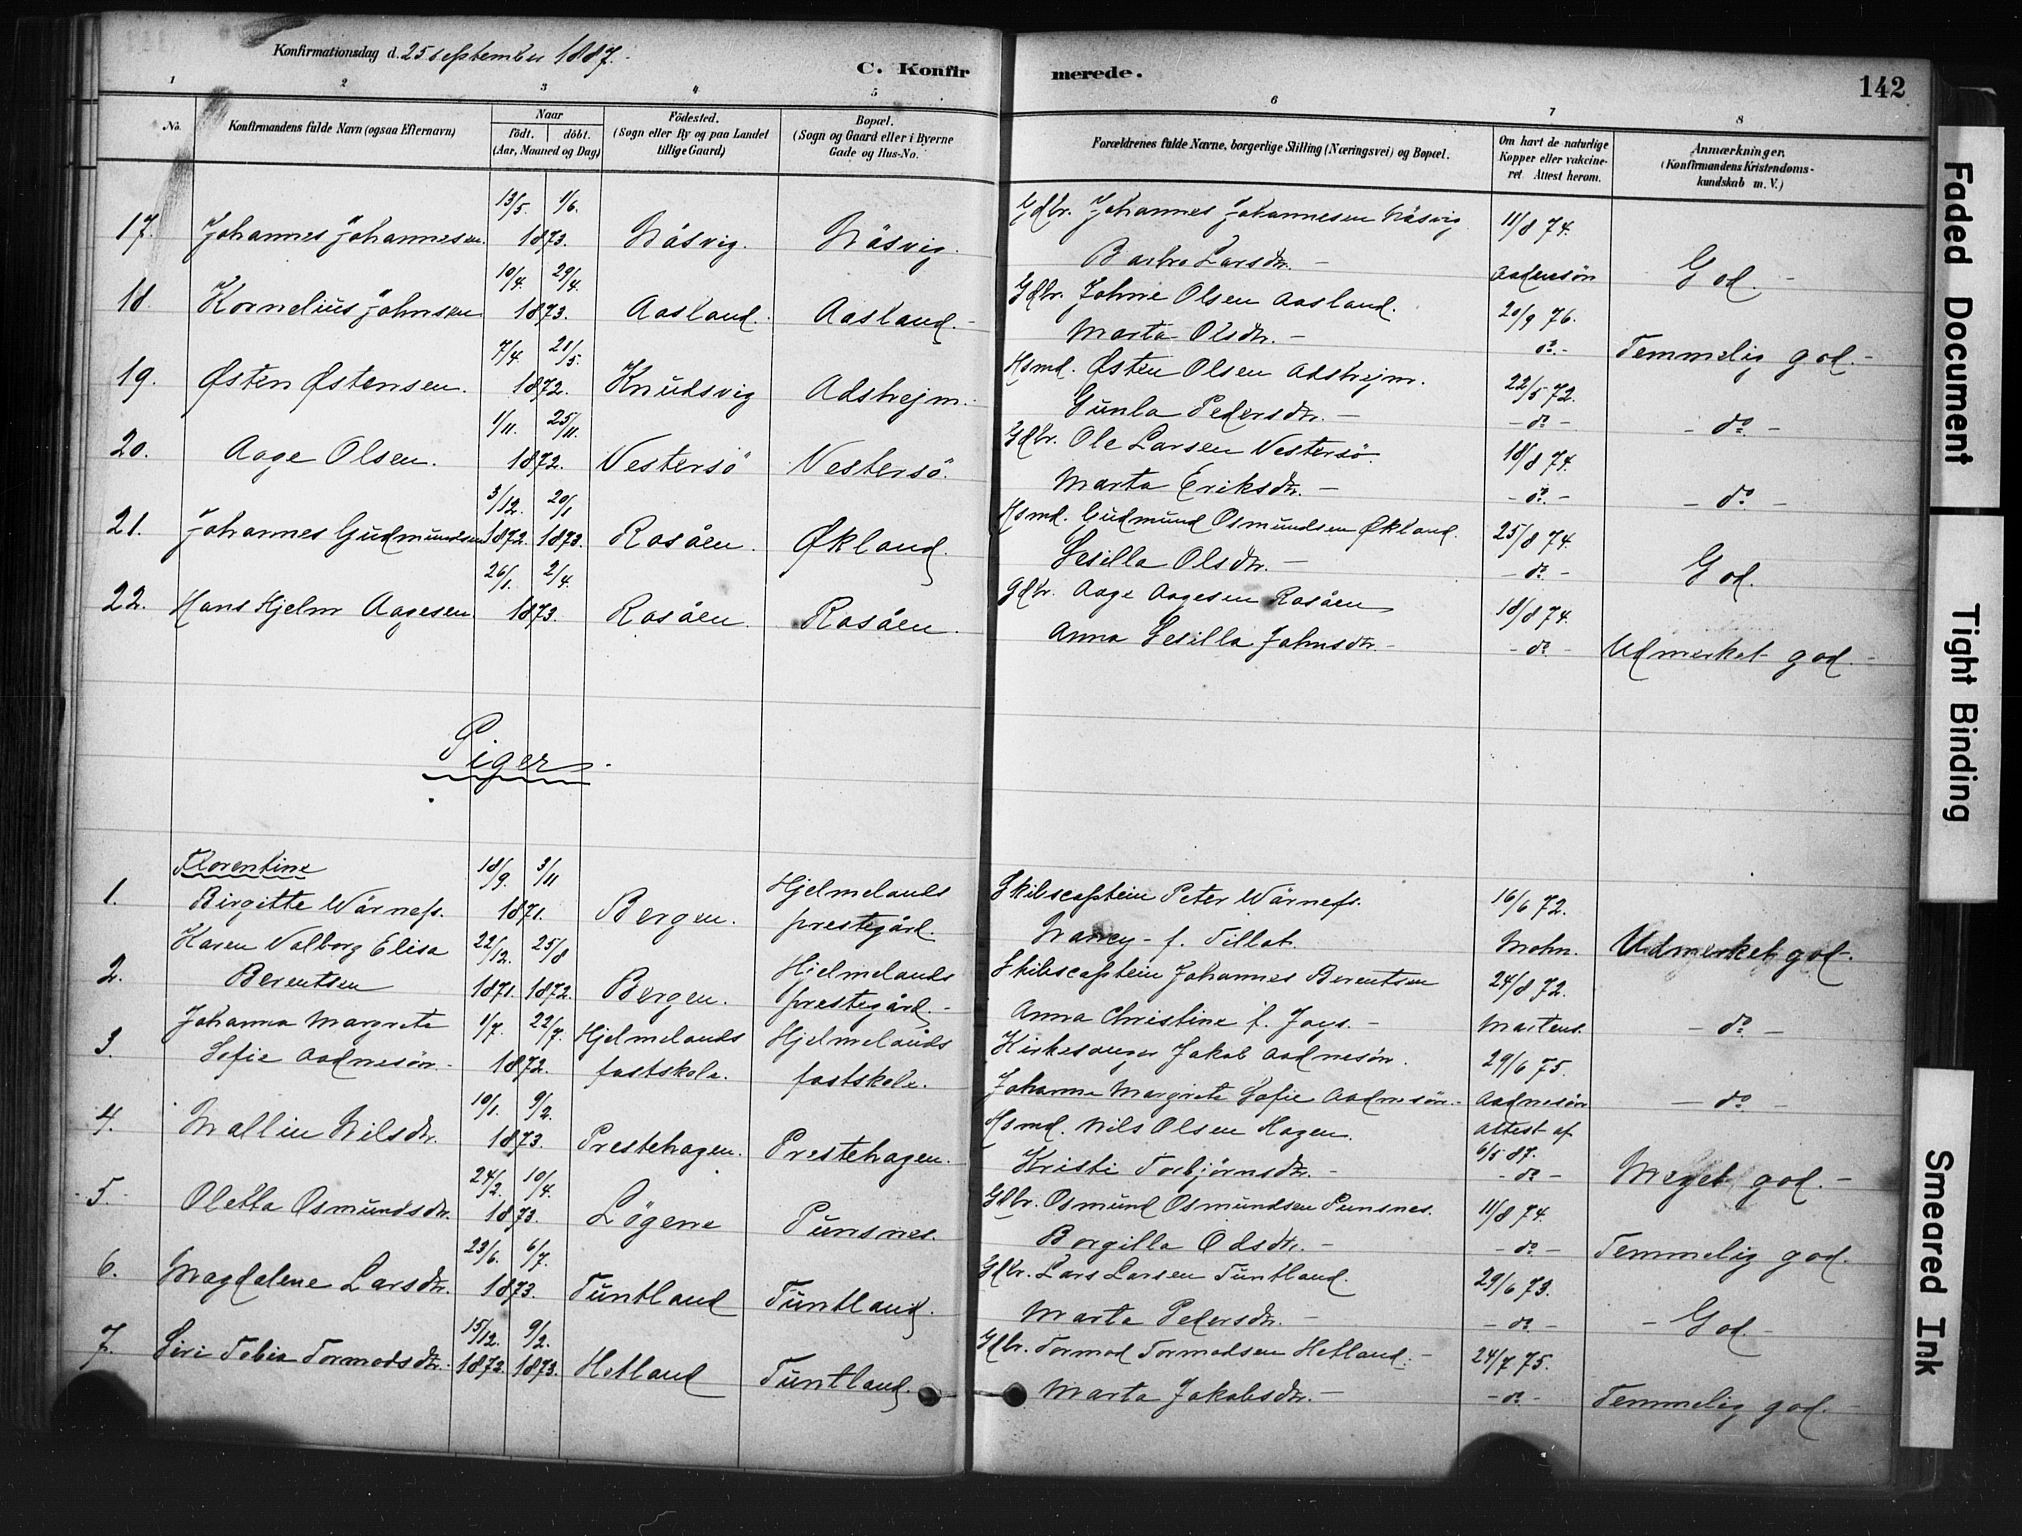 Konfirmationsdag d. 25 september 1887.
C. Konfirmerede.
142
1 2 3 4 5 6 7 8
No.
Konfirmandens fulde Navn (ogsaa Efternavn)
Naar
født. døbt.
(Aar, Maaned og Dag)
Födested.
(Sogn eller By og paa Landet
tillige Gaard)
Bopæl.
(Sogn og Gaard eller i Byerne
Gade og Hus-No.
Forældrenes fulde Navne, borgerlige Stilling (Næringsvei) og Bopæl.
Om havt de naturlige
Kopper eller vakcine-
ret. Attest herom.
Anmærkninger,
(Konfirmandens Kristendoms-
kundskab m. V.)
17. Johannes Johannesen. 13/5. 1/6. 1873. Nåsvig. Nåsvig. Gdbr. Johannes Johannesen Nåsvig 11/8 74.
Barbro Larsdtr. – Aadnesön God. –
18. Kornelius Johnsen. 10/4. 29/4. 1873. Aasland. Aasland. – Gdbr. Johne Olsen Aasland. 20/9 76.
Marta Olsdtr. – do. – Temmelig god. –
19. Østen Østensen. 7/4. 21/5. 1872. Knudsvig Adshejm. Hsmd. Østen Olsen Adshejm. 22/5 72.
Gunla Pedersdtr. – – do – – do –
20. Aage Olsen. 1/11. 25/11. 1872. Vestersö Vestersö. Gdbr. Ole Larsen Vestersö. 18/8 74.
Marta Eriksdtr. – – do – – do –
21. Johannes Gudmundsen 3/12. 1872. 20/1 1873. Rosåen. Økland. Hsmd. Gudmund Osmundsen Økland. 25/8 74.
Sesilla Olsdtr. – – do – God.
22. Hans Hjelm Aagesen. 26/1. 2/4. 1873. Rosåen. Rosåen. Gdbr. Aage Aagesen Rosåen 18/8 74.
Anna Sesilla Johnsdtr. – – do – Udmerket god. –
Piger.
1. Florentine
Birgitte Wårnefs. 18/9. 3/11 1871. Bergen. Hjelmelands
prestegård. Skibscaptein Peter Wårnefs. 16/6 72.
Nancy – f. Tillat. Mohn. Udmerket god –.
2. Karen Valborg Elisa
Berentsen 22/12. 1871. 25/8 1872. Bergen. Hjelmelands
prestegård. – Skibscaptein Johannes Berentsen 24/8 72.
Anna Christine f. Joys. – Martens. – do –
3. Johanna Margrete
Sofie Aadnesön. 1/7. 22/7. 1872. Hjelmelands
fastskole. Hjelmelands
fastskole. Kirkesanger Jakob Aadnesön. 29/6 75.
Johanne Margrete Sofie Aadnesön. – Aadnesön – do –
4. Mallin Nilsdtr. 10/1. 9/2. 1873. Prestehagen. Prestehagen. Hsmd. Nils Olsen Hagen. Attest af
6/5 87.
Kristi Torbjörnsdtr. – – do – Meget god. –
5. Oletta Osmundsdtr. 24/2. 10/4. 1873. Løgene Punsnes. Gdbr. Osmund Osmundsen Punsnes. 11/8 74.
Borgilla Odsdtr. – – do – Temmelig god.
6. Magdalene Larsdtr. 23/6. 6/7. 1873. Tuntland Tuntland. Gdbr. Lars Larsen Tuntland. 29/6 73.
Marta Pedersdtr. – – do – – God. –
7. Siri Tobia Tormodsdtr. 15/12. 1872. 9/2. 1873. Hetland Tuntland. Gdbr. Tormod Tormodsen Hetland. – 24/7 75.
Marta Jakobsdtr. – – do – Temmelig god. –
Faded Document
Tight Binding
Smeared Ink